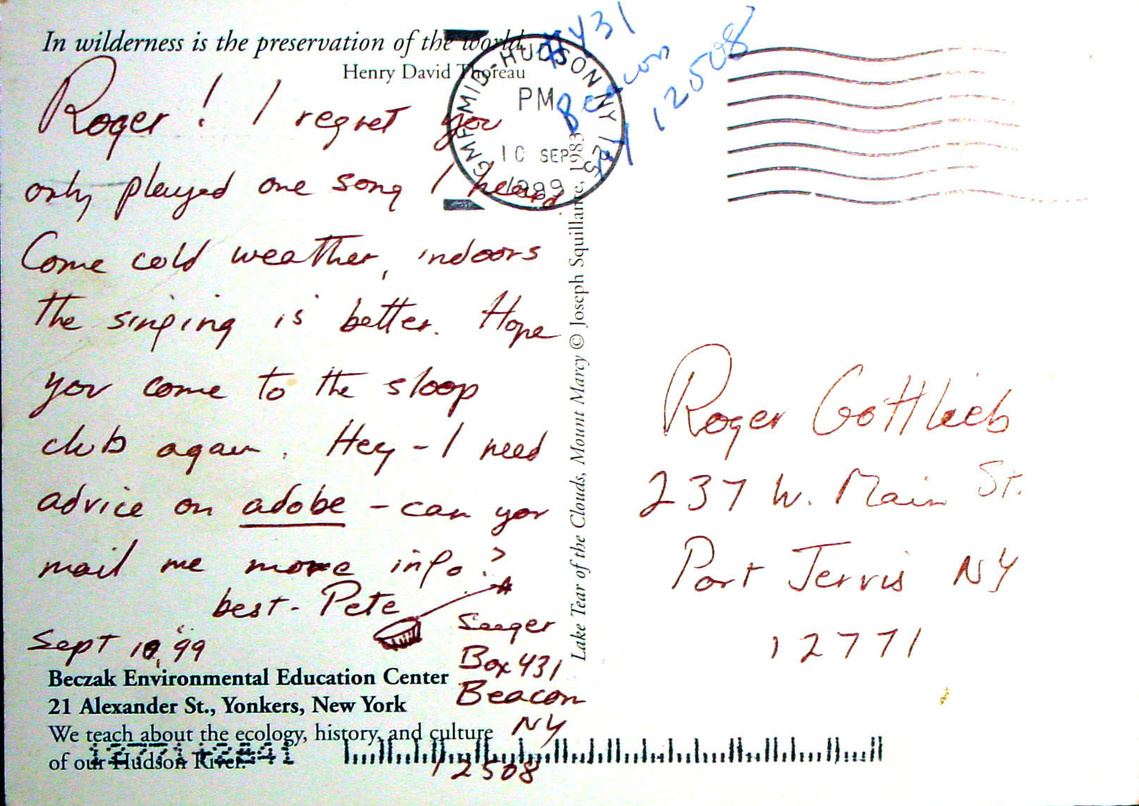 In wilderness is the preservation of the world.
Henry David Thoreau
Roger! I regret you
only played one song I heard.
Come cold weather, indoors
the singing is better. Hope
you come to the sloop
club again. Hey - I need
advice on adobe - can you
mail me more info?
best - Pete
Sept 10, 99
Seeger
Box 431
Beacon
NY
12508
Beczak Environmental Education Center
21 Alexander St., Yonkers, New York
We teach about the ecology, history, and culture
of our Hudson River.
12771+2841
Lake Tear of the Clouds, Mount Marcy © Joseph Squillante, 1983
GMF MID-HUDSON NY 125
PM
10 SEP
1999
#431
Beacon
NY 12508
Roger Gottlieb
237 W. Main St.
Port Jervis NY
12771